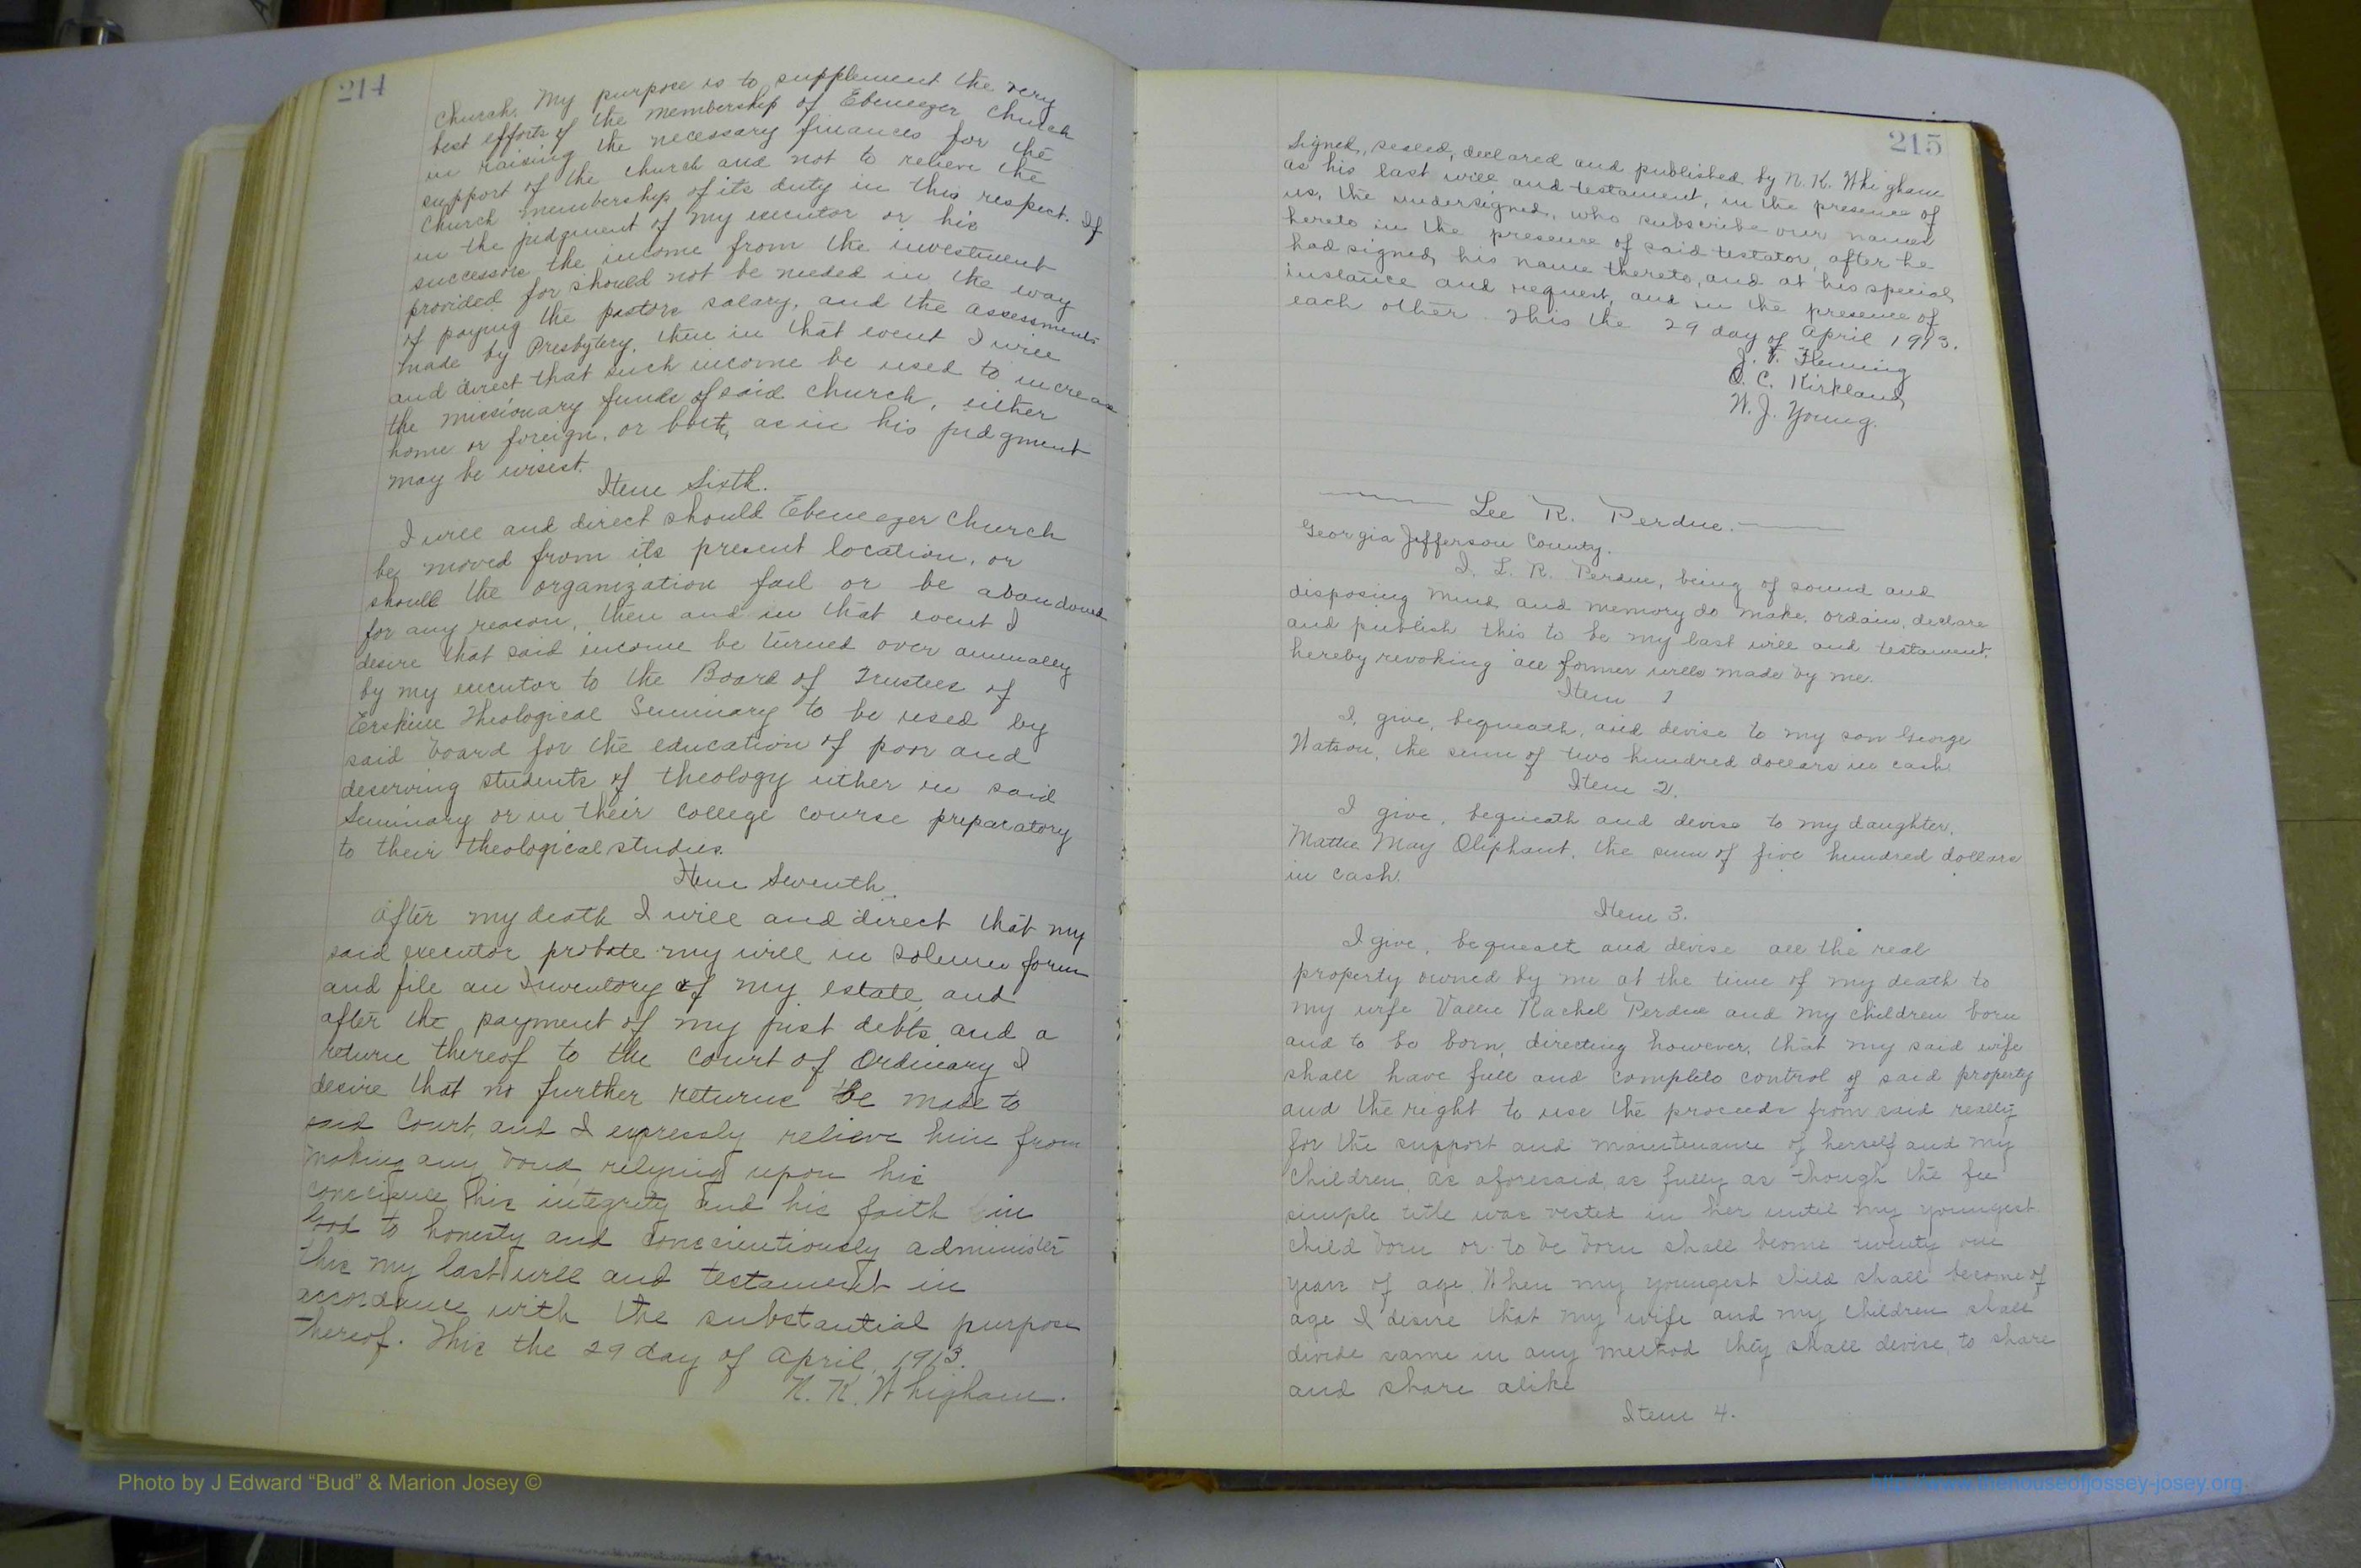 214
Church. My purpose is to supplement the very
best efforts of the membership of Ebenezer Church
in raising the necessary finances for the
support of the church and not to relieve the
Church membership of its duty in this respect. If
in the judgment of my executor or his
successors the income from the investment
provided for should not be needed in the way
of paying the pastors salary, and the assessments
made by Presbytery, then in that event I will
and direct that such income be used to increase
the missionary funds of said church, either
home or foreign, or both, as in his judgment
may be wisest.
Item Sixth.
I will and direct should Ebenezer Church
be moved from its present location, or
should the organization fail or be abandoned
for any reason, then and in that event I
desire that said income be turned over annually
by my executor to the Board of Trustees of
Erskine Theological Seminary to be used by
said board for the education of poor and
deserving students of theology either in said
Seminary or in their college course preparatory
to their theological studies.
Item Seventh.
After my death I will and direct that my
said executor probate my will in solemn form
and file an Inventory of my estate, and
after the payment of my just debts and a
return thereof to the Court of Ordinary I
desire that no further returns be made to
said Court, and I expressly relieve him from
making any bond, relying upon his
conscience, his integrity and his faith in
God to honesty and conscientiously administer
this my last will and testament in
accordance with the substantial purpose
thereof. This the 29 day of April, 1913.
N. K. Whigham.
215
Signed, sealed, declared and published by N. K. Whigham
as his last will and testament, in the presence of
us, the undersigned, who subscribe our names
hereto in the presence of said testator, after he
had signed his name thereto, and at his special
instance and request, and in the presence of
each other. This the 29 day of April 1913.
J. F. Fleming
O. C. Kirkland
W. J. Young.
Lee R. Perdue.
Georgia Jefferson County.
I, L. R. Perdue, being of sound and
disposing mind and memory do make, ordain, declare
and publish this to be my last will and testament,
hereby revoking all former wills made by me.
Item 1
I, give, bequeath, and devise to my son George
Watson, the sum of two hundred dollars in cash
Item 2.
I give, bequeath and devise to my daughter,
Mattie May Oliphant, the sum of five hundred dollars
in cash.
Item 3.
I give, bequeath and devise all the real
property owned by me at the time of my death to
my wife Vallie Rachel Perdue and my children born
and to be born, directing however, that my said wife
shall have full and complete control of said property
and the right to use the proceeds from said realty
for the support and maintenance of herself and my
children, as aforesaid, as fully as though the fee
simple title was vested in her until my youngest
child born or to be born shall become twenty one
years of age. When my youngest child shall become of
age I desire that my wife and my children shall
divide same in any method they shall devise, to share
and share alike
Item 4.
Photo by J Edward “Bud” & Marion Josey ©
http://www.thehouseofjossey-josey.org